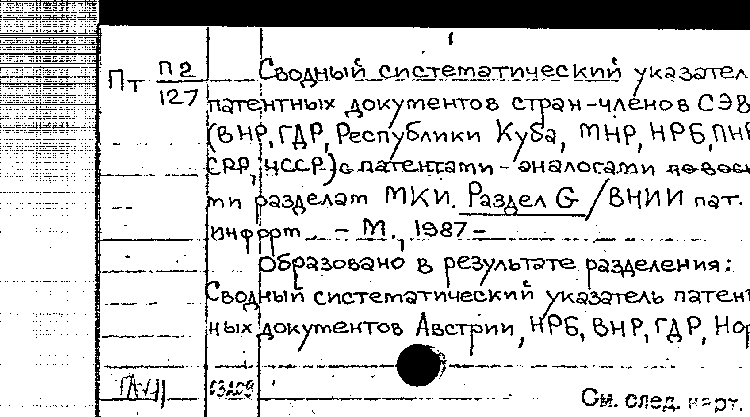 1
Пт П2/127 Сводный систематический указател
патентных документов стран-членов СЭВ
(ВНР, ГДР, Республики Куба, МНР, НРБ, ПНР
СРР, ЧССР) с патентами-аналогами по вось
ми разделам МКИ. Раздел G / ВНИИ пат.
информ. - М., 1987 -
Образовано в результате разделения:
Сводный систематический указатель патент
ных документов Австрии, НРБ, ВНР, ГДР, Нор
См. след. карт.